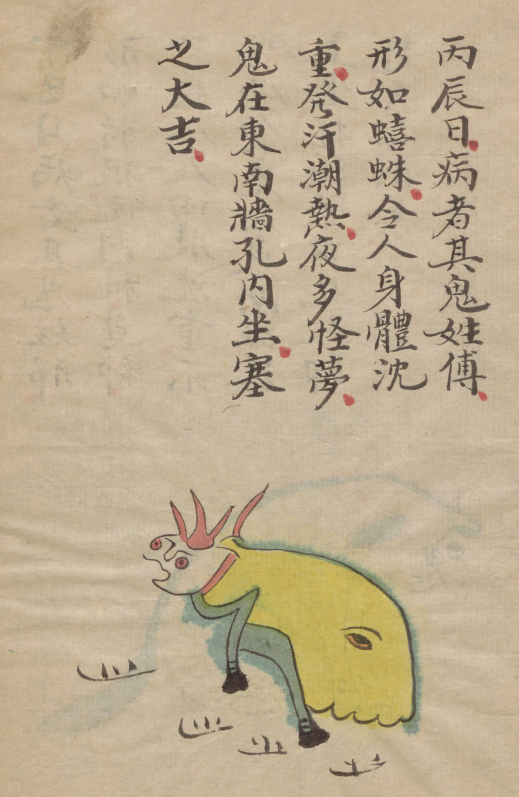 丙辰日病者其鬼姓傅
形如蟢蛛令人身體沈
重發汗潮熱夜多怪夢
鬼在東南牆孔內坐塞
之大吉